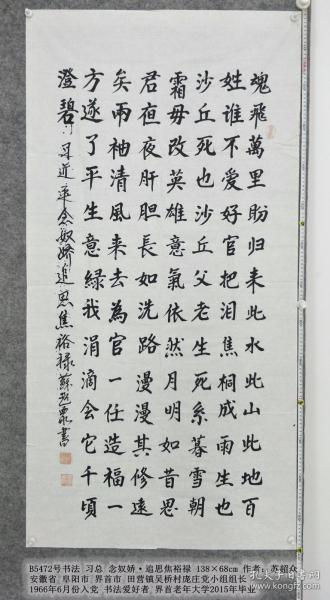 魂飛萬里盼归来此水此山此地百
姓誰不爱好官把泪焦桐成雨生也
沙丘死也沙丘父老生死系暮雪朝
霜毋改英雄意氣依然月明如昔思
君夜夜肝胆長如洗路漫漫其修遠
矣兩袖清風来去為官一任造福一
方遂了平生意绿我涓滴会它千頃
澄碧
习近平念奴娇追思焦裕禄 蘇超眾書
B5472号书法 习总 念奴娇·追思焦裕禄 138×68cm 作者：苏超众
安徽省 阜阳市 界首市 田营镇吴桥村庞庄党小组组长
1966年6月份入党 书法爱好者 界首老年大学2015年毕业